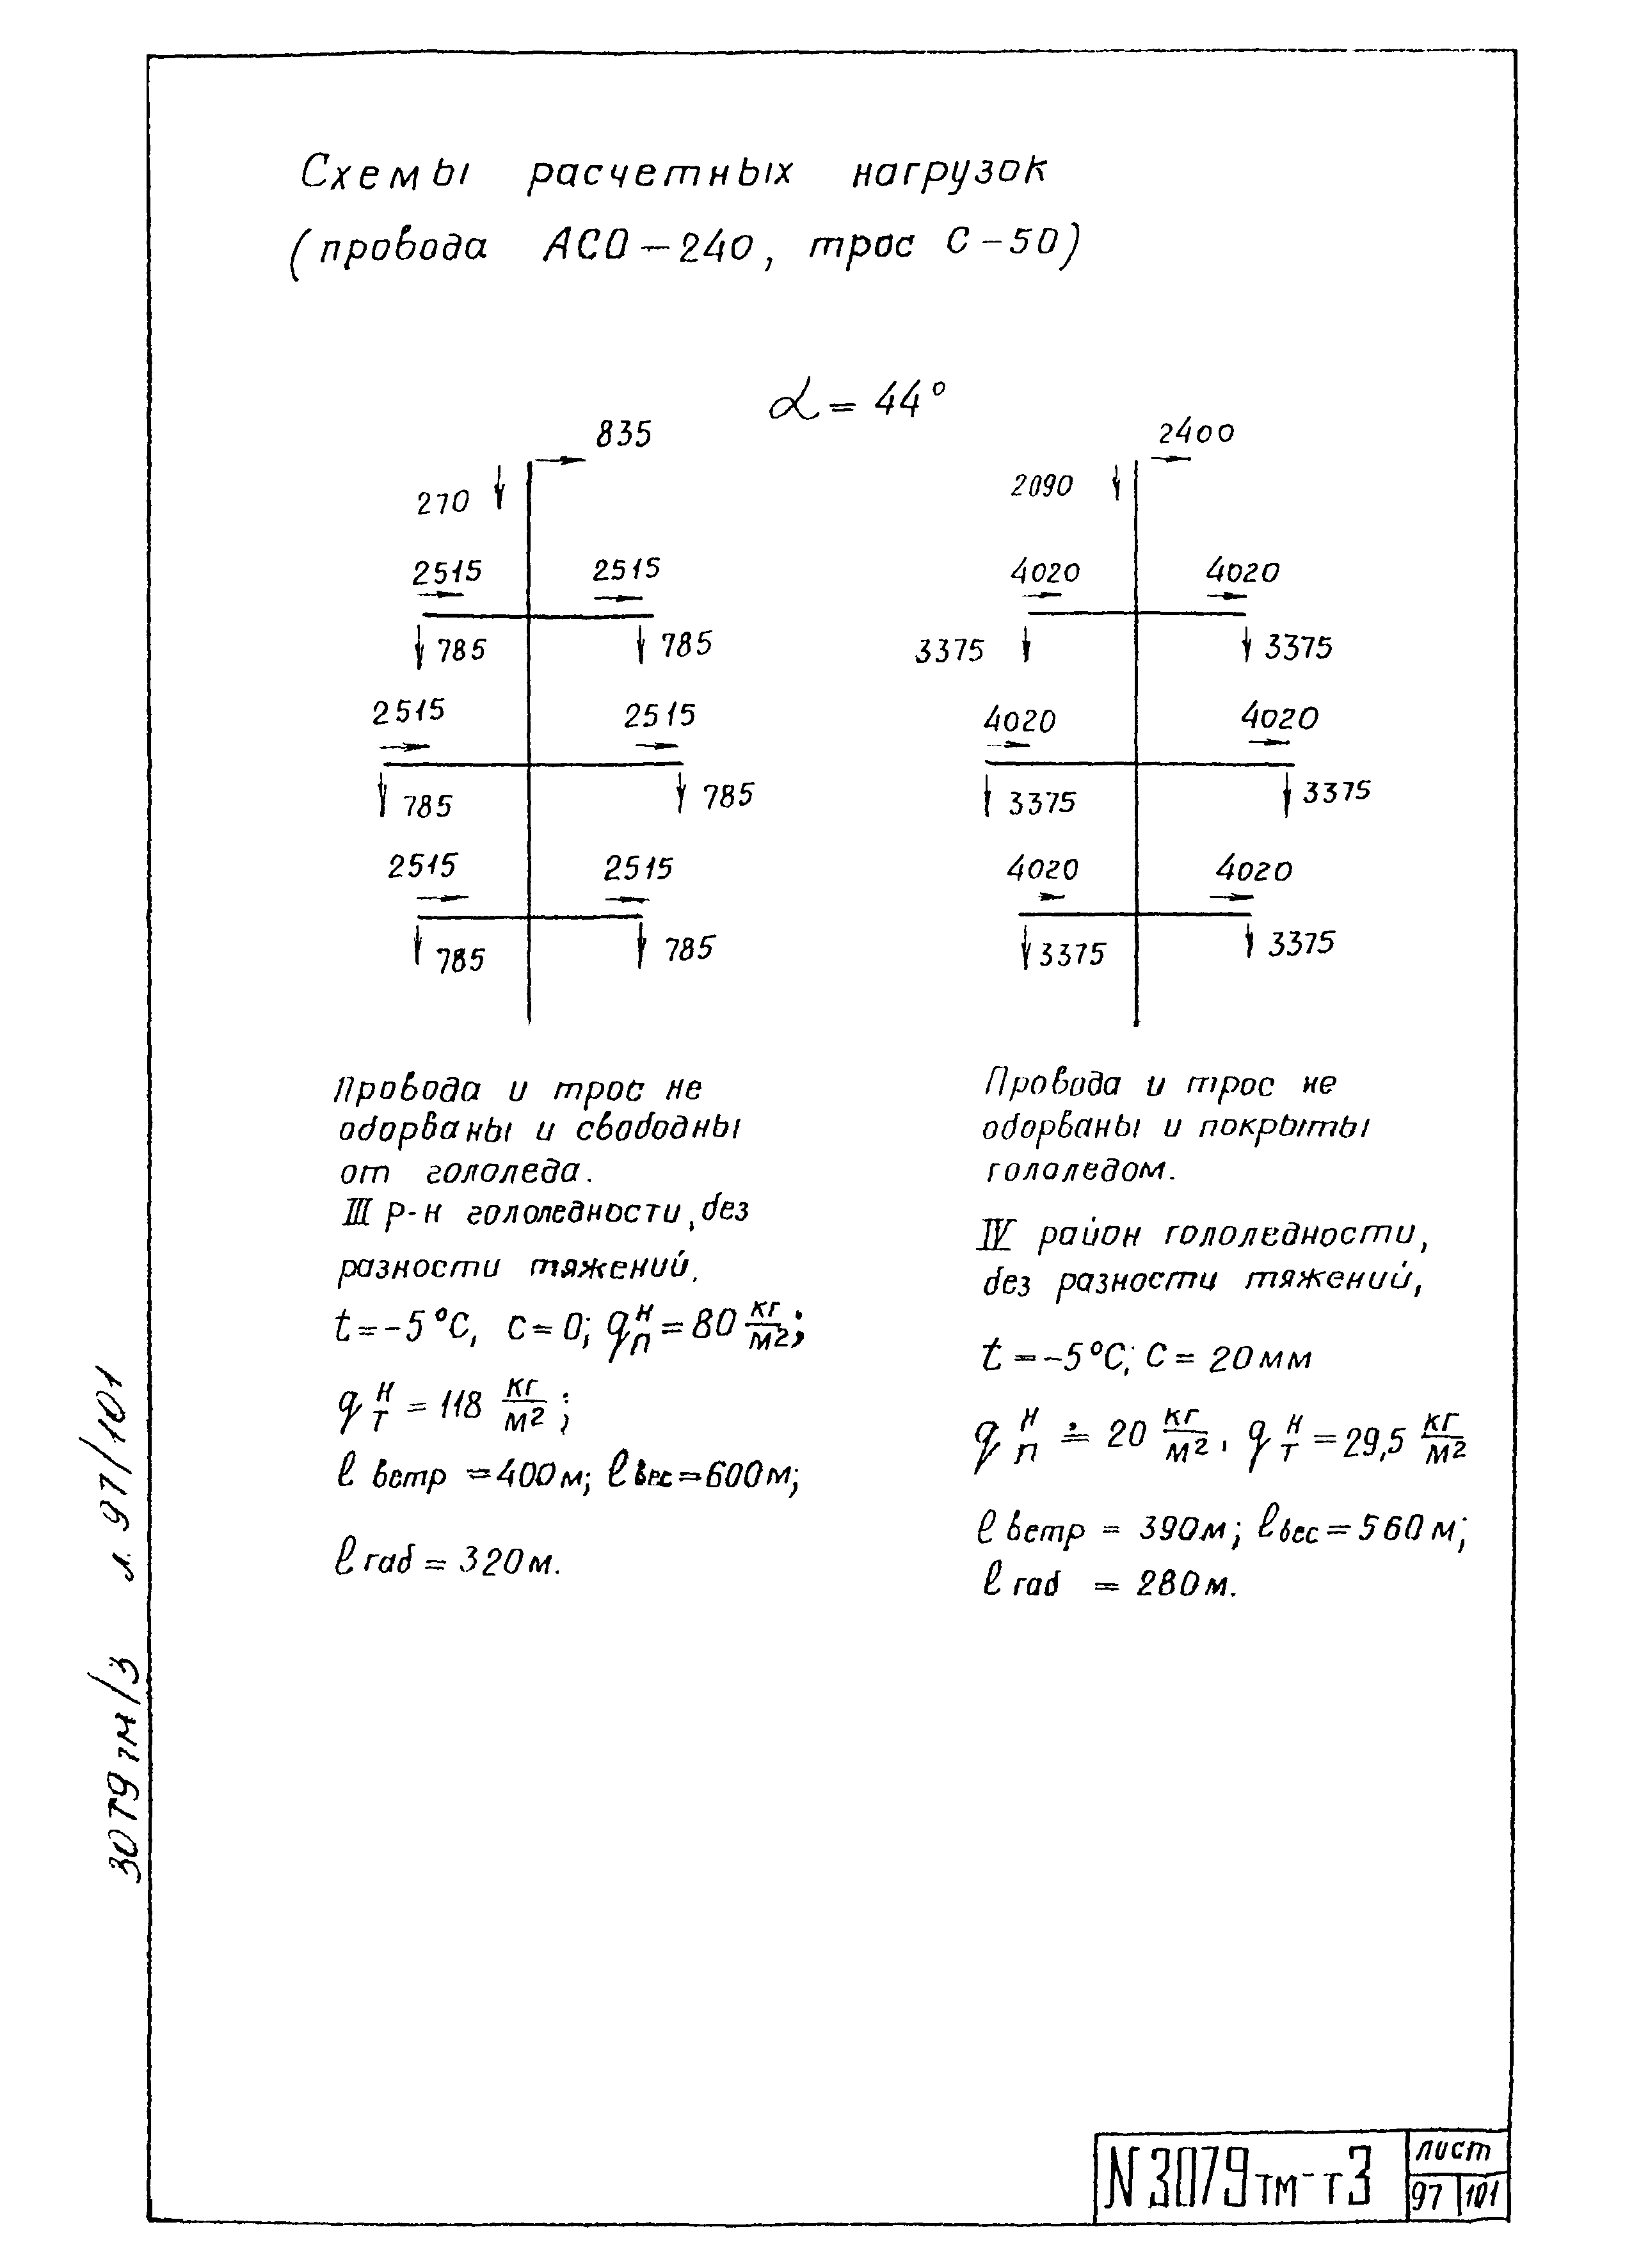 Схемы расчетных нагрузок
(провода АСО-240, трос С-50)
α = 44°
835
270
2515 2515
785 785
2515 2515
785 785
2515 2515
785 785
2400
2090
4020 4020
3375 3375
4020 4020
3375 3375
4020 4020
3375 3375
Провода и трос не
оборваны и свободны
от гололеда.
III р-н гололедности, без
разности тяжений.
t=-5°C, c=0; qнп=80 кг/м2;
qнт=118 кг/м2;
ℓ ветр =400м; ℓ вес=600м;
ℓ габ = 320м.
Провода и трос не
оборваны и покрыты
гололедом.
IV район гололедности,
без разности тяжений,
t=-5°C; C= 20мм
qнп = 20 кг/м2, qнт=29,5 кг/м2
ℓ ветр = 390м; ℓ вес=560м;
ℓ габ = 280м.
3079тм/3 л. 97/101
N3079тм-т3
лист
97 101